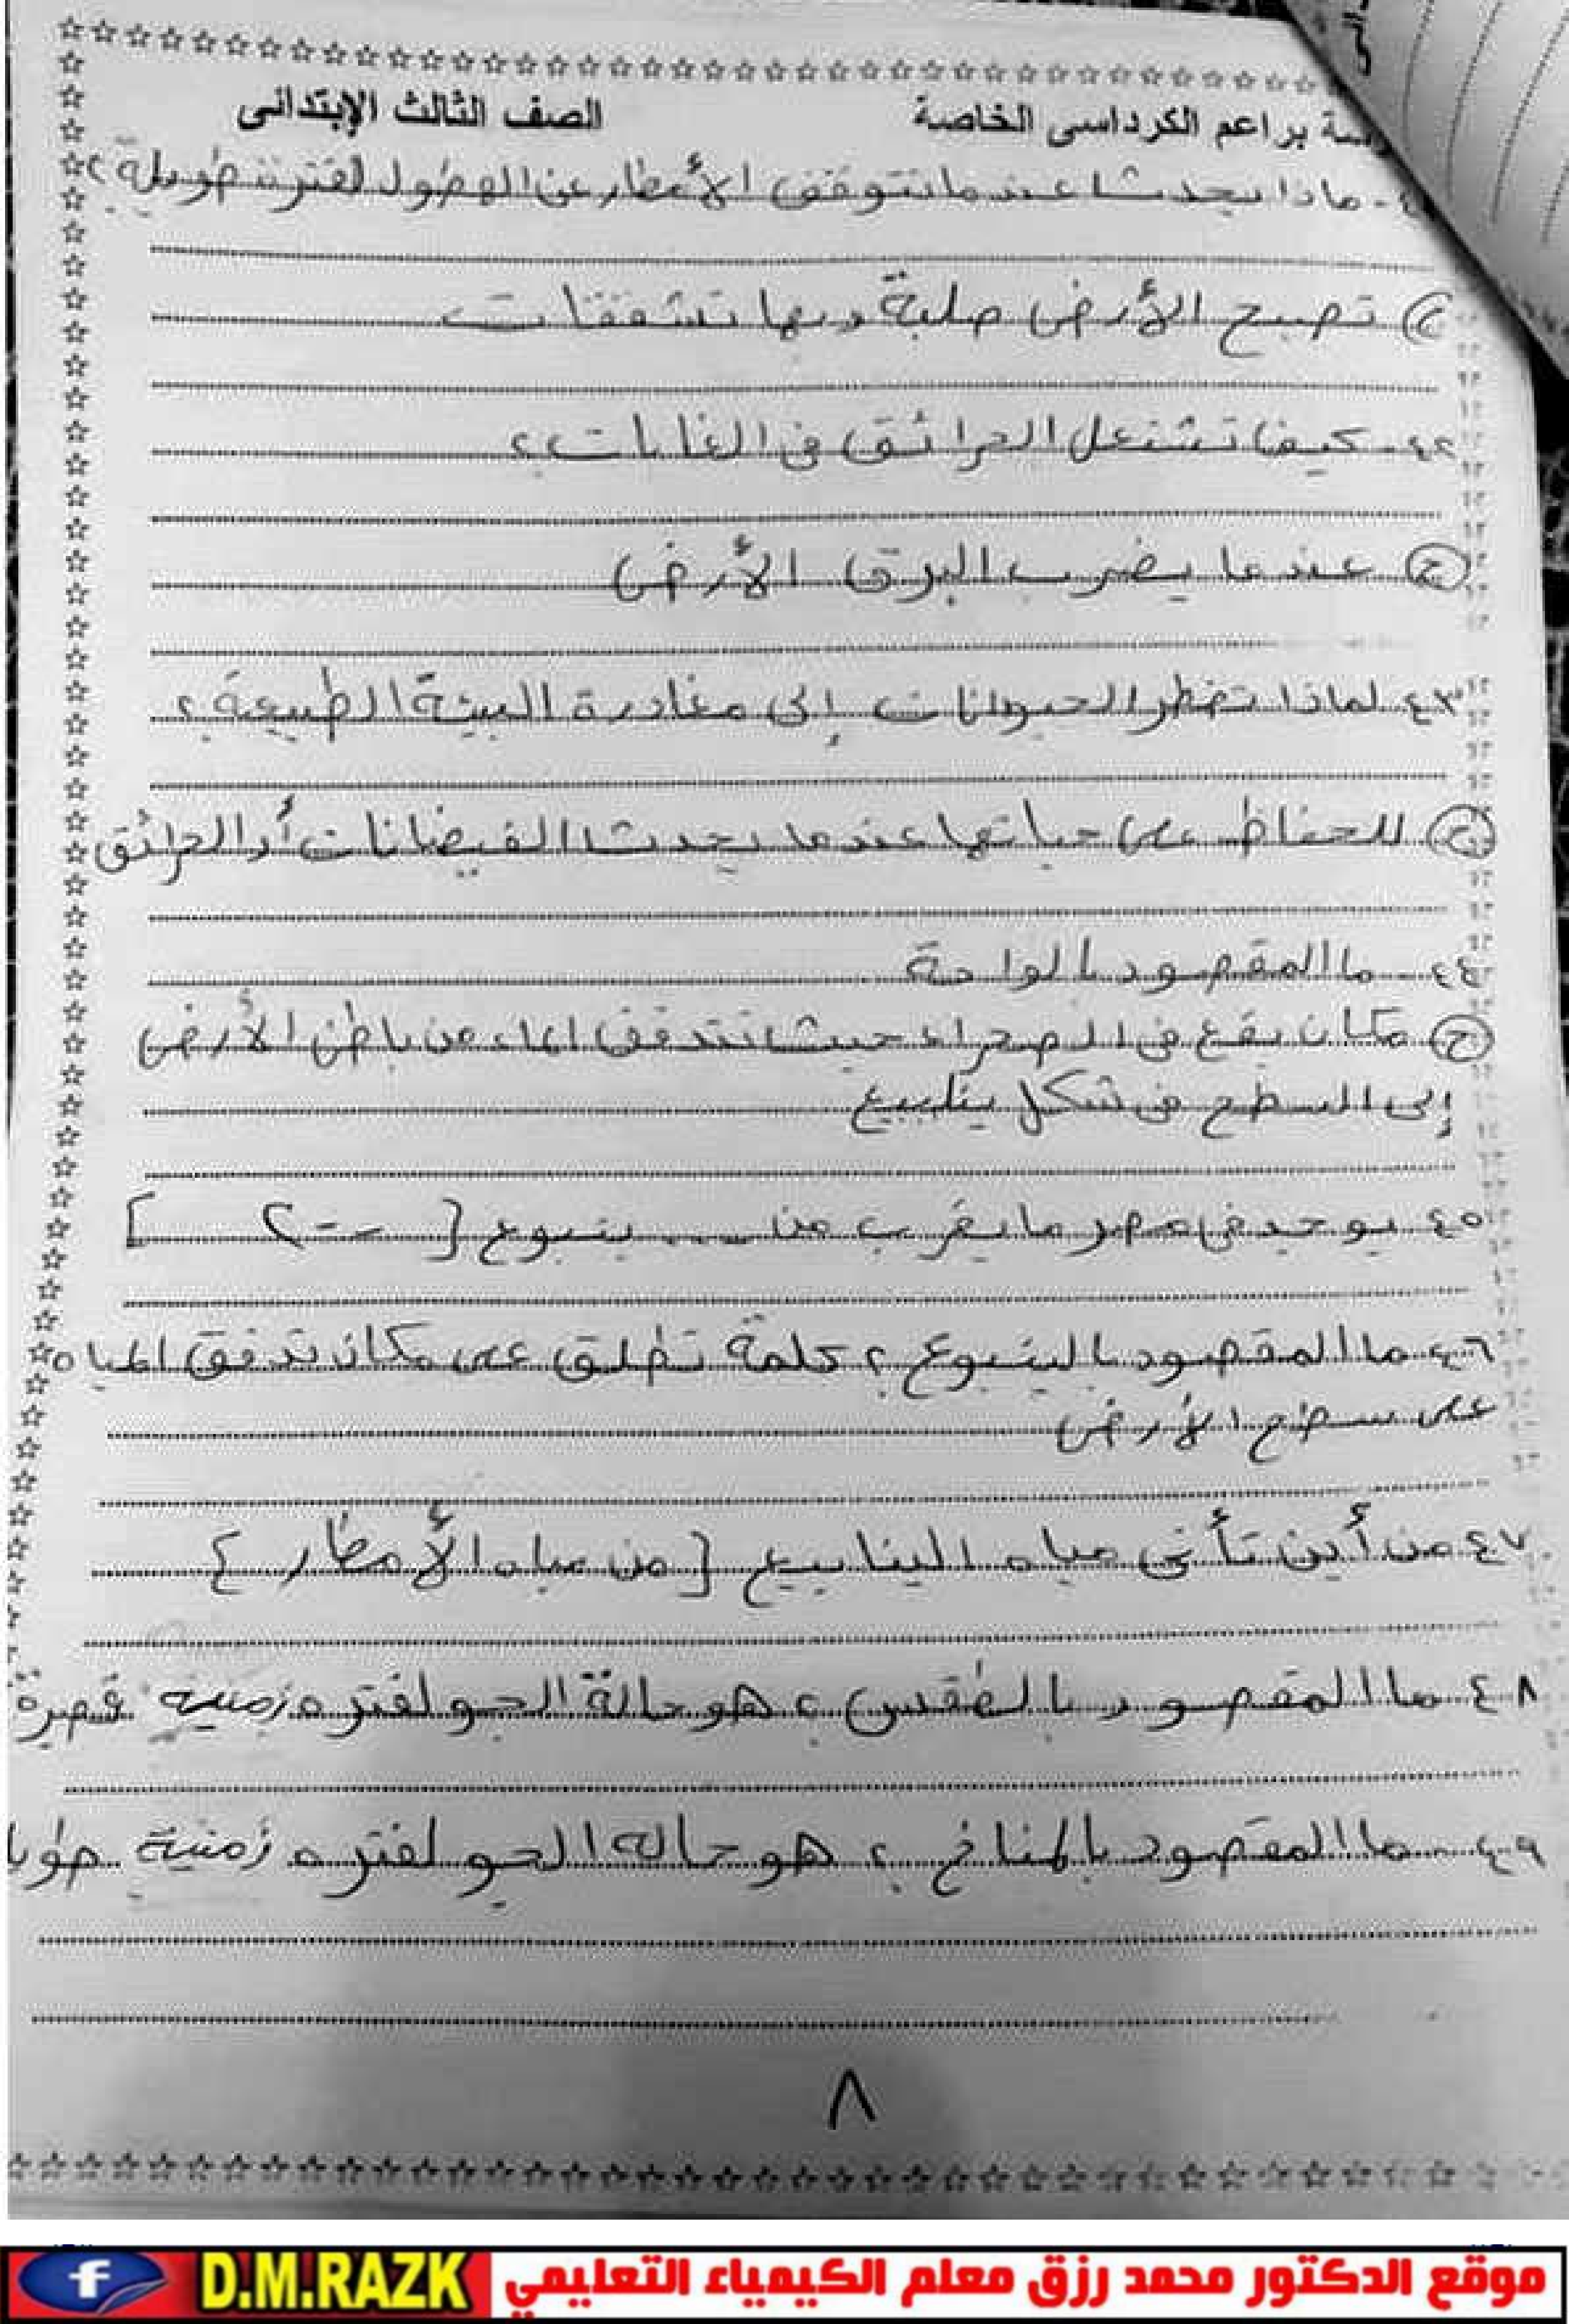 سة براعم الكرداسى الخاصة الصف الثالث الإبتدائى
- ماذا يحدث عندما تتوقف الأمطار عن الهطول لفترة طويلة؟
ج تصبح الأرض صلبة وبها تشققات
٤٢- كيف تشتعل الحرائق فى الغابات؟
ج عندما يضرب البرق الأرض
٤٣- لماذا تضطر الحيوانات إلى مغادرة البيئة الطبيعية؟
ج للحفاظ على حياتها عندما يحدث الفيضانات أو الحرائق
٤٤- ما المقصود بالواحة
ج مكان يقع فى الصحراء حيث تتدفق الماء من باطن الأرض
إلى السطح فى شكل ينابيع
٤٥ يوجد فى مصر ما يقرب من .... ينبوع [ ٢٠٠ ]
٤٦- ما المقصود بالينبوع؟ كلمة تطلق على مكان تدفق المياه
على سطح الأرض
٤٧ من أين تأتى مياه الينابيع [من مياه الأمطار]
٤٨ ما المقصود بالطقس؟ هو حالة الجو لفتره زمنية قصيرة
٤٩- ما المقصود بالمناخ؟ هو حاله الجو لفتره زمنية
٨
f D.M.RAZK موقع الدكتور محمد رزق معلم الكيمياء التعليمي